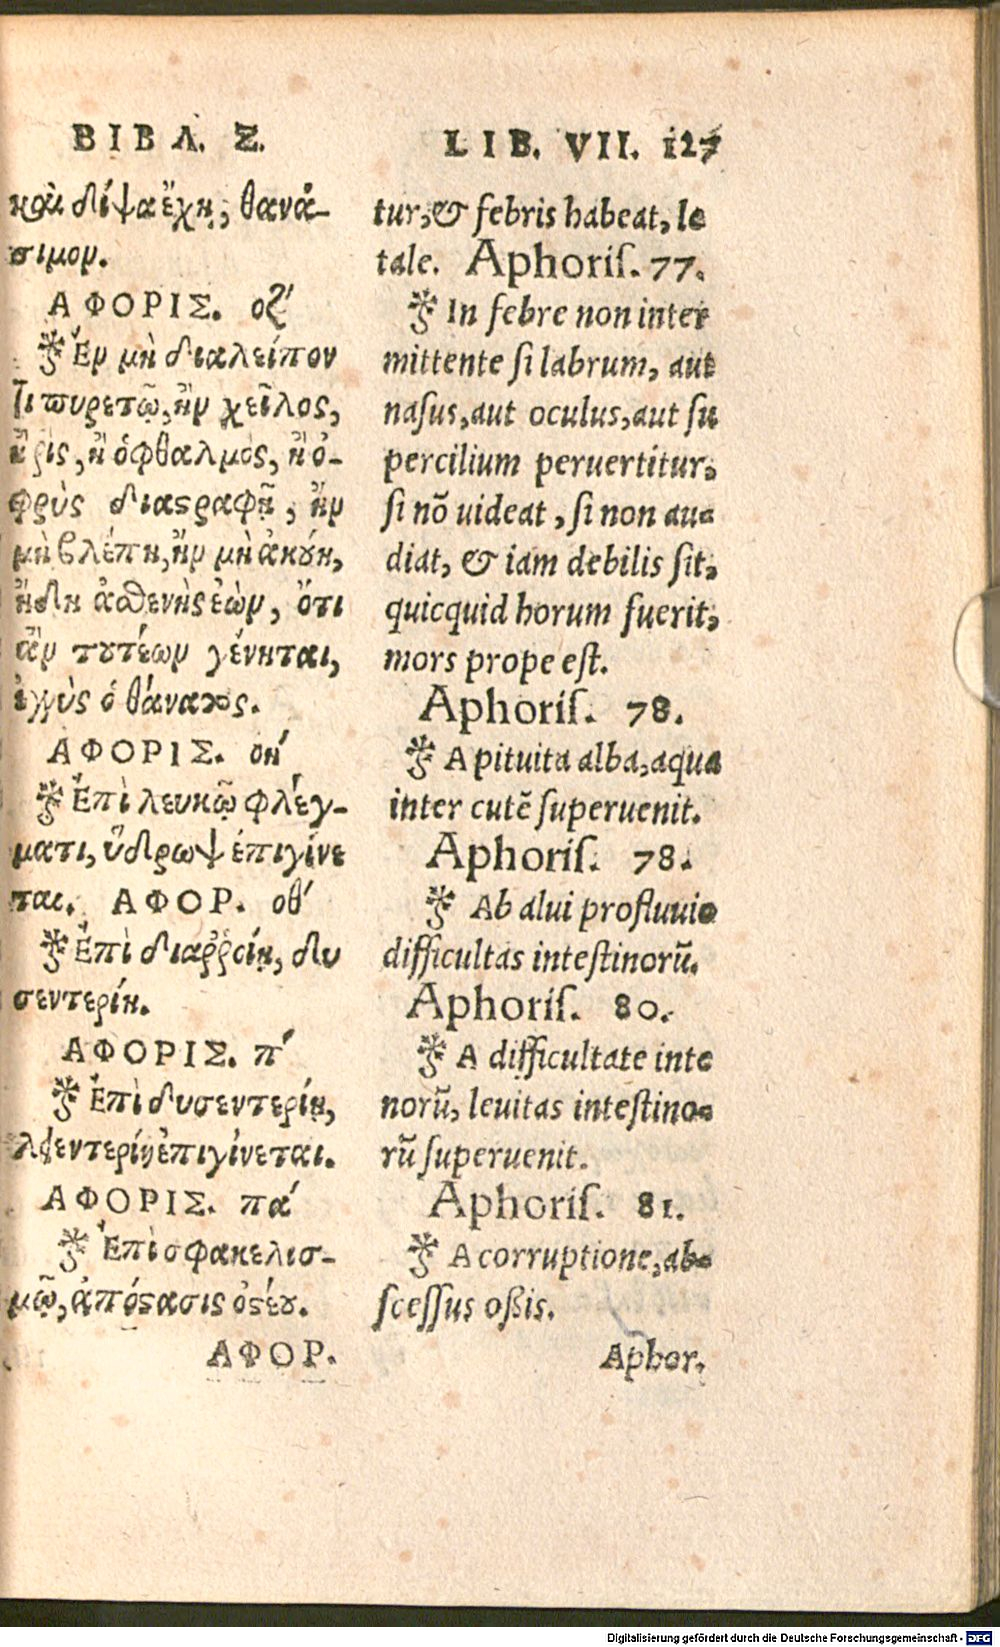 ΒΙΒΛ. Ζ.
καὶ δίψα ἔχῃ, θανά-
σιμον.
ΑΦΟΡΙΣ. οζʹ
Ἐν μὴ διαλείπον
τι πυρετῷ, ἢν χεῖλος,
ἢ ῥὶς, ἢ ὀφθαλμὸς, ἢ ὀ-
φρὺς διαστραφῇ, ἢν
μὴ βλέπῃ, ἢν μὴ ἀκούῃ,
ἤδη ἀσθενὴς ἐὼν, ὅτι
ἂν τουτέων γένηται,
ἐγγὺς ὁ θάνατος.
ΑΦΟΡΙΣ. οηʹ
Ἐπὶ λευκῷ φλέγ-
ματι, ὕδρωψ ἐπιγίνε
ται. ΑΦΟΡ. οθʹ
Ἐπὶ διαῤῥοίῃ, δυ
σεντερίη.
ΑΦΟΡΙΣ. πʹ
Ἐπὶ δυσεντερίῃ,
λειεντερίη ἐπιγίνεται.
ΑΦΟΡΙΣ. παʹ
Ἐπὶ σφακελισ-
μῷ, ἀπόστασις ὀστέου.
ΑΦΟΡ.
LIB. VII. 127
tur, & febris habeat, le
tale. Aphoriſ. 77.
In febre non inter
mittente ſi labrum, aut
naſus, aut oculus, aut ſu
percilium peruertitur,
ſi nō uideat, ſi non au-
diat, & iam debilis ſit,
quicquid horum fuerit,
mors prope eſt.
Aphoriſ. 78.
A pituita alba, aqua
inter cutē ſuperuenit.
Aphoriſ. 78.
Ab alui profluuio
difficultas inteſtinorū.
Aphoriſ. 80.
A difficultate inte
norū, leuitas inteſtino-
rū ſuperuenit.
Aphoriſ. 81.
A corruptione, ab-
ſceſſus oßis.
Aphor.
Digitalisierung gefördert durch die Deutsche Forschungsgemeinschaft - DFG